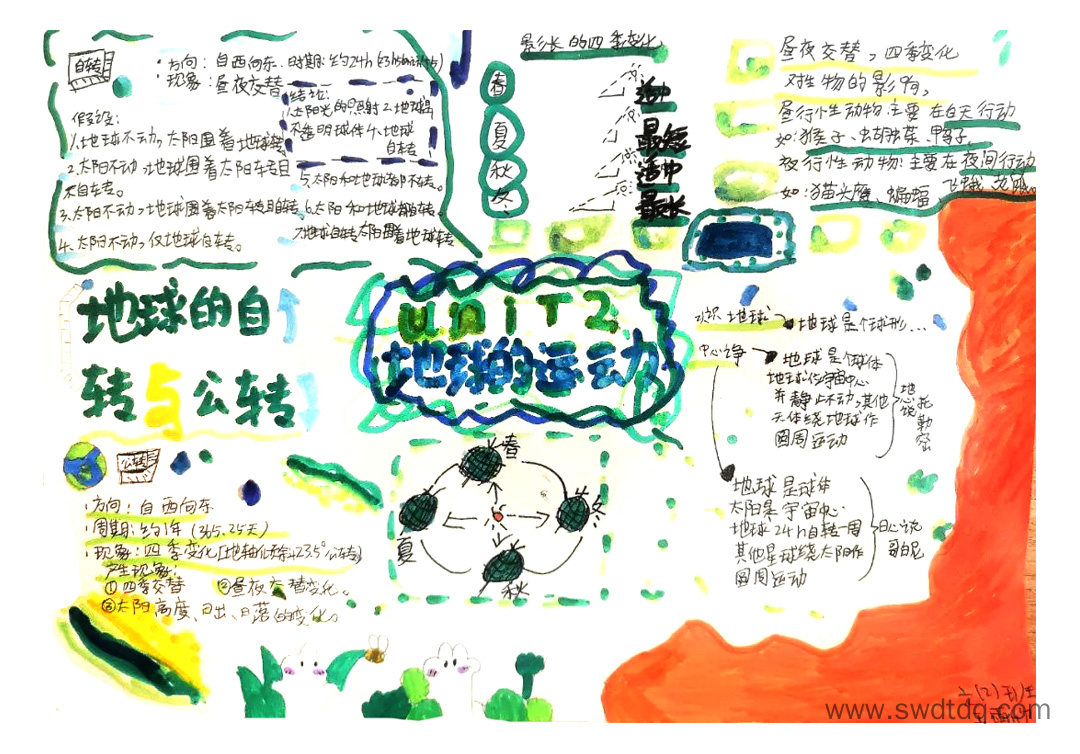 自转
方向：自西向东
时期：约24h
现象：昼夜交替
假设：
1.地球不动，太阳围着地球转
2.太阳不动，地球围着太阳车专且
不自车专。
3.太阳不动，地球围着太阳转且自转。
4.太阳不动，仅地球自转。
结论：
太阳光的照射 2.地球是
不透明球体 4.地球
自转
5.太阳和地球都不转。
6.太阳和地球都自转。
7.地球自转太阳围着地球转
影长的四季变化
春 适中
夏 最短
秋 适中
冬 最长
昼夜交替，四季变化
对生物的影响，
昼行性动物：主要在白天行动
如：猴子、蝴蝶、鸭子。
夜行性动物：主要在夜间行动
如：猫头鹰、蝙蝠、飞蛾
地球的自
转与公转
UNIT2
地球的运动
地球
地球是个球形…
中心之争
地球是个球体
地球位宇宙中心
并静止不动，其他
天体绕地球作
圆周运动
地心说
托勒密
地球是球体
太阳是宇宙中心
地球24h自转一周
其他星球绕太阳作
圆周运动
日心说
哥白尼
公转
方向：自西向东
周期：约1年（365.25天）
现象：四季变化[地轴倾斜23.5°公转]
产生现象：
①四季交替 ②昼夜交替变化。
③太阳高度、日出、日落的变化。
春
夏
冬
秋
www.swdtdq.com